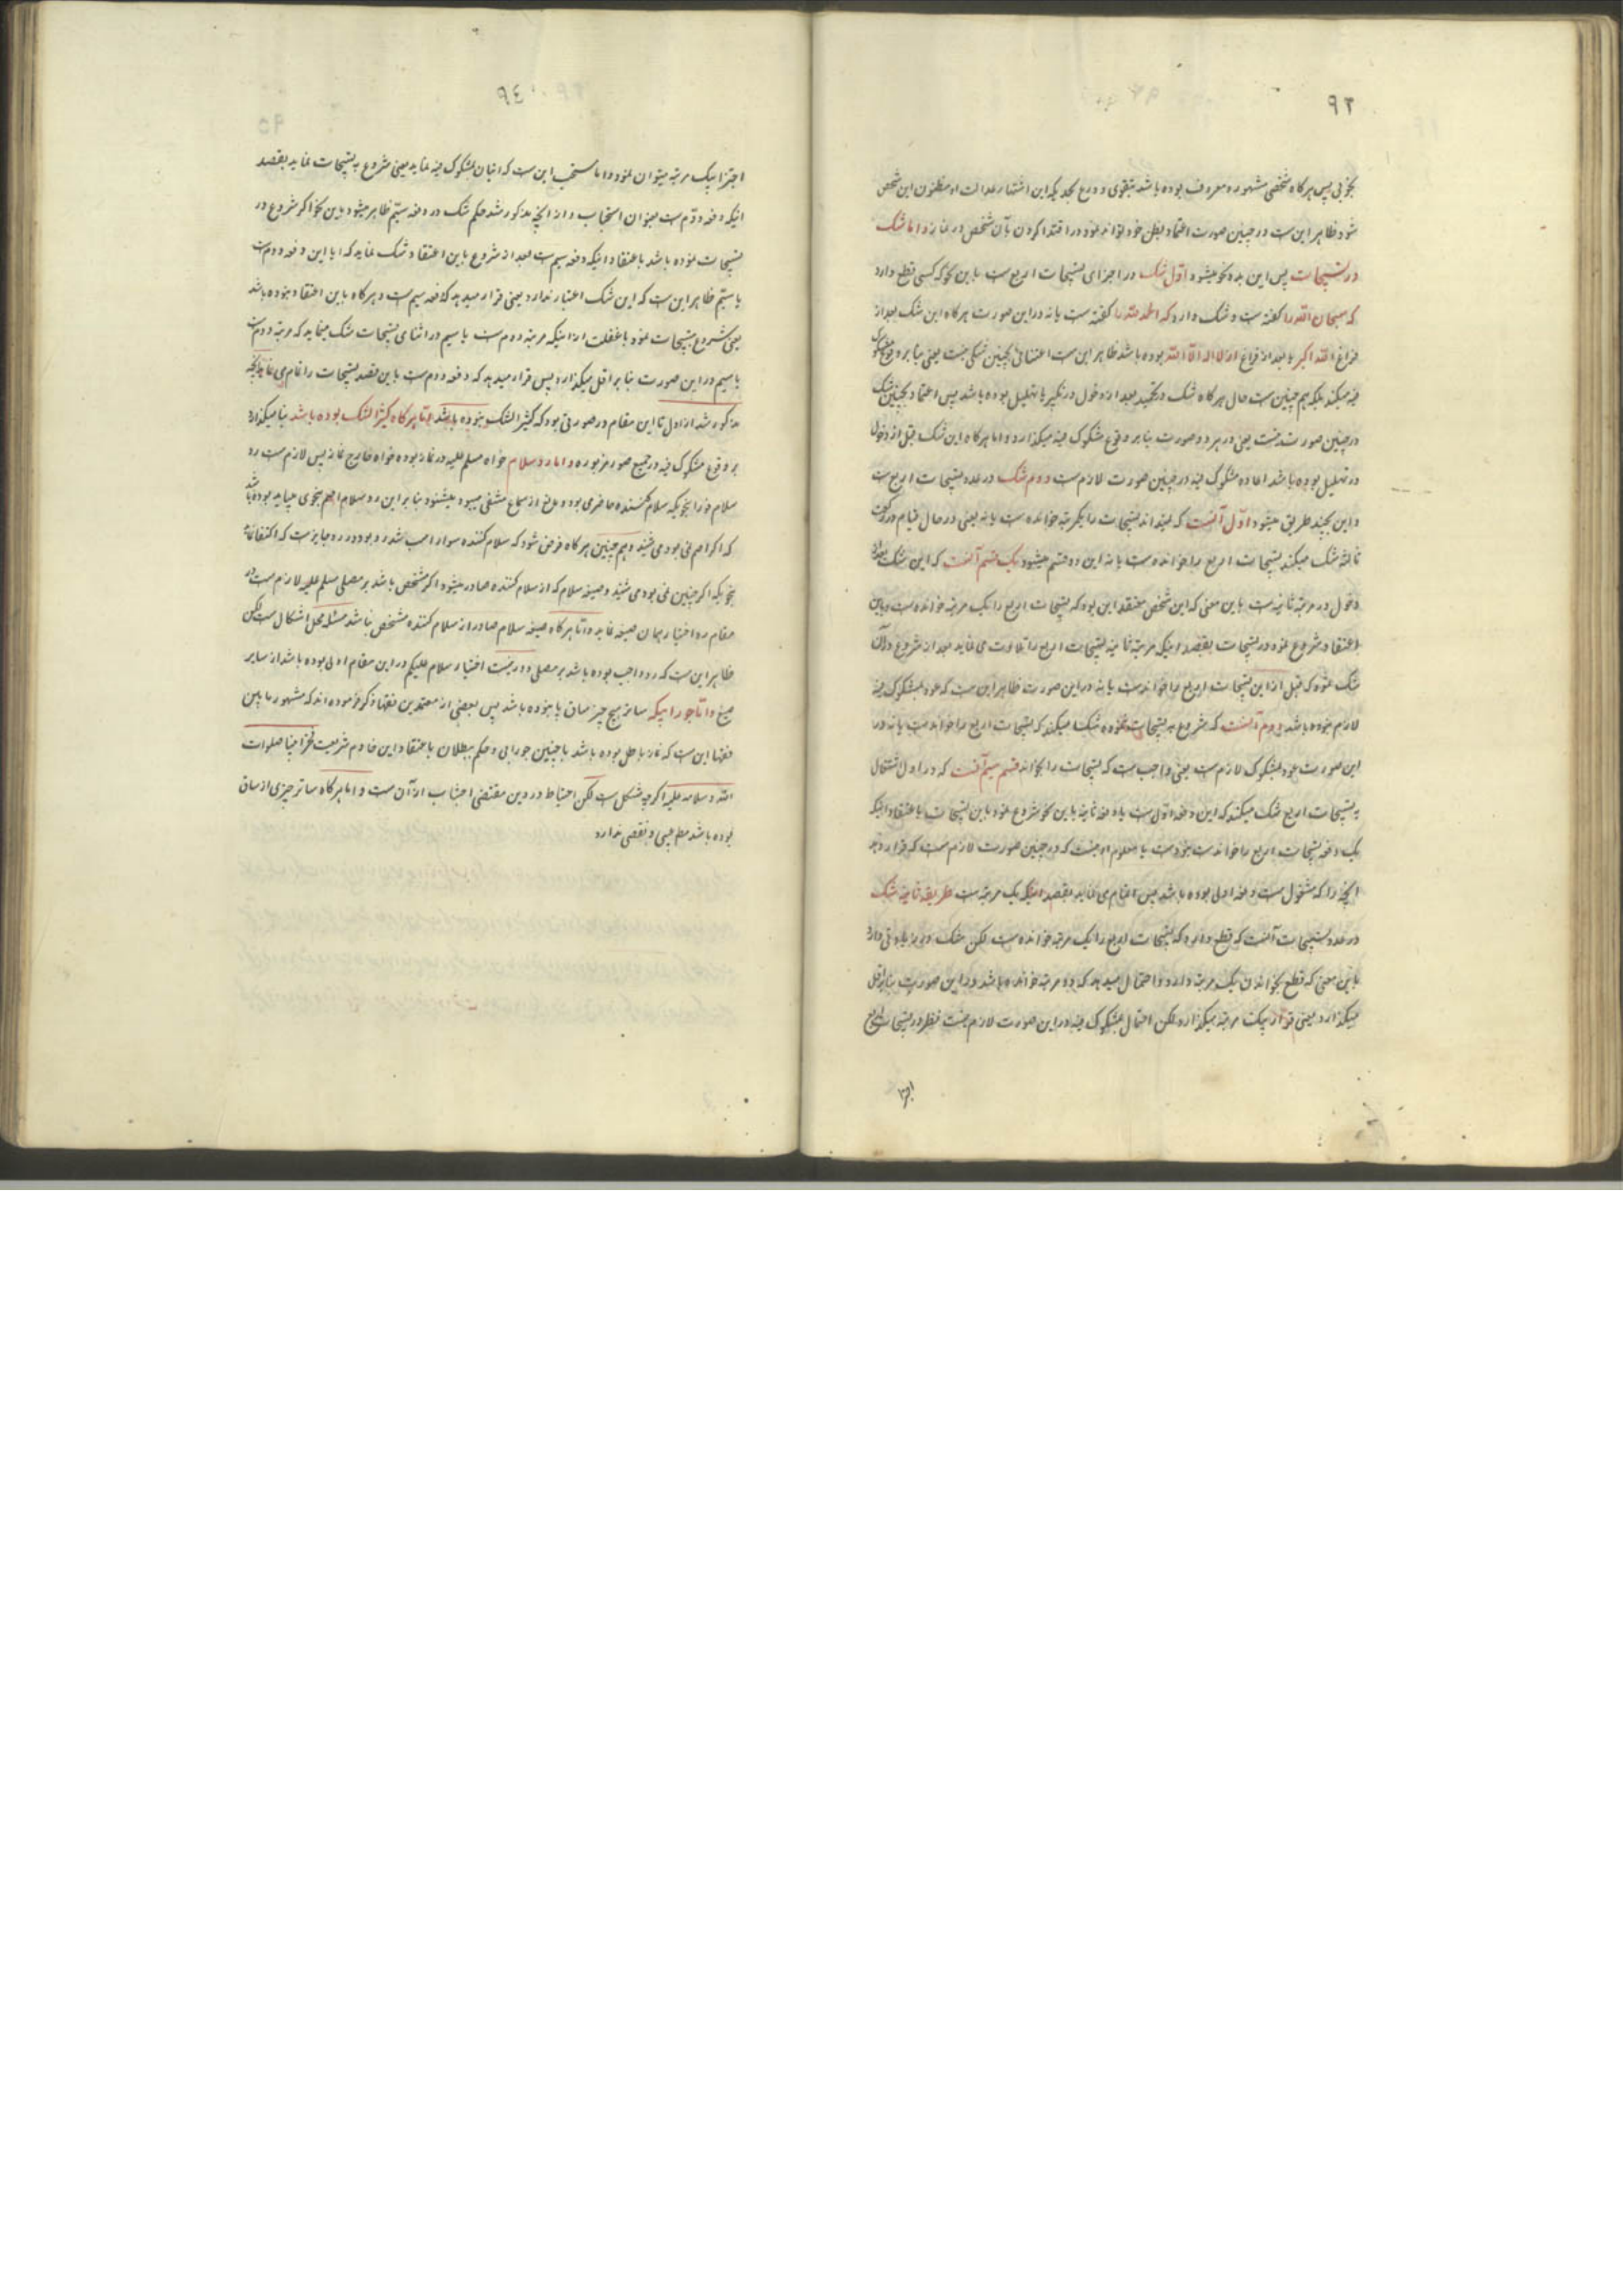 ۹۲
بخوبی پس هرگاه شخصی مشهور و معروف بوده باشد بتقوی و ورع بحدیکه این اشتهار عدالت او مظنون این شخص
شود ظاهر این ست در چنین صورت اعتماد بظن خود تواند نمود در اقتدا کردن بآن شخص در نماز و اما شک
در تسبیحات پس این بدو نحو میشود اول شک در اجزای تسبیحات اربع ست باین نحو که کسی قطع دارد
که سبحان الله را گفته ست و شک دارد که الحمد لله را گفته ست یا نه در این صورت هرگاه این شک بعد از
فراغ الله اکبر یا بعد از فراغ از لا اله الا الله بوده باشد ظاهر این ست اعتنائی بچنین شکی نیست یعنی بنا بر وقوع مشکوک
فیه میکند بلکه هم چنین ست حال هرگاه شک در تحمید بعد از دخول در تکبیر یا تهلیل بوده باشد پس اعتماد بچنین شک
در چنین صورت نیست یعنی در هر دو صورت بنا بر وقوع مشکوک فیه میگذارد و اما هرگاه این شک قبل از دخول
در تهلیل بوده باشد اعاده مشکوک فیه در چنین صورت لازم ست دوم شک در عدد تسبیحات اربع ست
و این بچند طریق میشود اول آنست که نمیداند تسبیحات را یکمرتبه خوانده ست یا نه یعنی در حال قیام در رکعت
ثالثه شک میکند تسبیحات اربع را خوانده ست یا نه این دو قسم میشود یک قسم آنست که این شک بعد از
دخول در مرتبه ثانیه ست باین معنی که این شخص معتقد این بود که تسبیحات اربع را یک مرتبه خوانده ست و باین
اعتقاد شروع نمود در تسبیحات بقصد اینکه مرتبه ثانیه تسبیحات اربع را تلاوت می نماید بعد از شروع در آن
شک نمود که قبل از این تسبیحات اربع را خوانده ست یا نه در این صورت ظاهر این ست که عود بمشکوک فیه
لازم نبوده باشد دوم آنست که شروع به تسبیحات ننموده شک میکند که تسبیحات اربع را خوانده ست یا نه در
این صورت عود بمشکوک لازم ست یعنی واجب ست که تسبیحات را بخواند قسم سیم آنست که در اول اشتغال
به تسبیحات اربع شک میکند که این دفعه اول ست یا دفعه ثانیه باین نحو شروع نمود باین تسبیحات با اعتقاد اینکه
یک دفعه تسبیحات اربع را خوانده ست یا معلوم او نیست که در چنین صورت لازم ست که قرار دهد
آنچه را که مشغول ست دفعه اولی بوده باشد پس اتمام می نماید بقصد اینکه یک مرتبه ست طریقه ثانیه شک
در عدد تسبیحات آنست که قطع دارد که تسبیحات اربع را یک مرتبه خوانده ست لکن شک در زیادتی دارد
باین معنی که قطع بخواندن یک مرتبه دارد و احتمال میدهد که دو مرتبه خوانده باشد در این صورت بنا بر اقل
میگذارد یعنی قرار بیک مرتبه میگذارد لکن اتیان بمشکوک فیه در این صورت لازم نیست نظر در تسبیحات اربع
اجزا
۹٤
اجتزا بیک مرتبه میتوان نمود و اما مستحب این ست که اتیان بمشکوک فیه نماید یعنی شروع به تسبیحات نماید بقصد
اینکه دفعه دوم ست بعنوان استحباب و از آنچه مذکور شد حکم شک در دفعه سیم ظاهر میشود باین نحو اگر شروع در
تسبیحات نموده باشد با عتقاد اینکه دفعه سیم ست بعد از شروع باین اعتقاد شک نماید که آیا این دفعه دوم ست
یا سیم ظاهر این ست که این شک اعتبار ندارد یعنی قرار میدهد که دفعه سیم ست و هرگاه باین اعتقاد نبوده باشد
یعنی شروع بتسبیحات نمود با غفلت از اینکه مرتبه دوم ست یا سیم در اثنای تسبیحات شک مینماید که مرتبه دوم ست
یا سیم در این صورت بنا بر اقل میگذارد پس قرار میدهد که دفعه دوم ست باین قصد تسبیحات را تمام می نماید آنچه
مذکور شد از اول تا این مقام در صورتی بود که کثیر الشک نبوده باشد اما هرگاه کثیر الشک بوده باشد بنا میگذارد
بر وقوع مشکوک فیه در جمیع صور مزبوره و اما رد سلام خواه مسلم علیه در نماز بوده خواه خارج نماز پس لازم ست رد
سلام فورا بنحویکه سلام کننده حاضری بود و مانع از سماع منتفی میبود میشنود بنا بر این رد سلام اصم بنحوی میباید بوده باشد
که اگر اصم نمی بود می شنید و هم چنین هرگاه فرض شود که سلام کننده سوار اسب تندرو بود در رد جایز ست که اکتفا نماید
بنحویکه اگر چنین نمی بود می شنید و صیغه سلام که از سلام کننده صادر میشود اگر مشخص باشد بر مصلی مسلم علیه لازم ست در
مقام رد اختیار همان صیغه نماید و اما هرگاه صیغه سلام صادر از سلام کننده مشخص نباشد مسئله محل اشکال ست لکن
ظاهر این ست که رد واجب بوده باشد بر مصلی و دور نیست اختیار سلام علیکم در این مقام اولی بوده باشد از سایر
صیغ و اما جورابیکه ساتر هیچ چیز ساق پا نبوده باشد پس بعضی از معتمدین فقها ذکر فرموده اند که مشهور ما بین
فقها این ست که نماز باطل بوده باشد با چنین جورابی و حکم ببطلان باعتقاد این خادم شریعت فخر انبیا صلوات
الله و سلامه علیه اگرچه مشکل ست لکن احتیاط در دین مقتضی اجتناب از آن ست و اما هرگاه ساتر چیزی از ساق
بوده باشد عیبی و نقصی ندارد